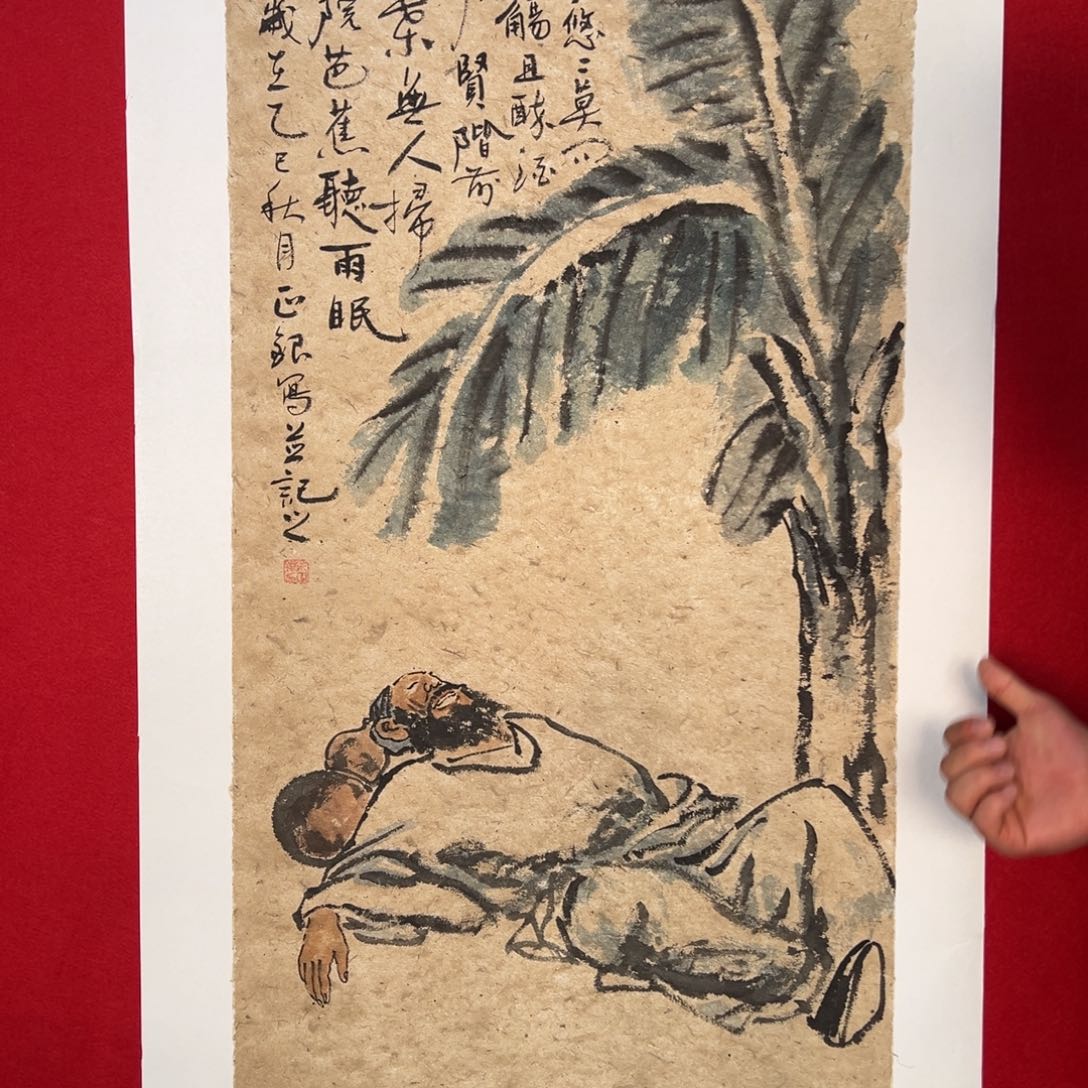 悠〻莫问
觴且酔酒
賢階前
葉無人掃
院芭蕉聽雨眠
歲在乙巳秋月正銀寫並記之